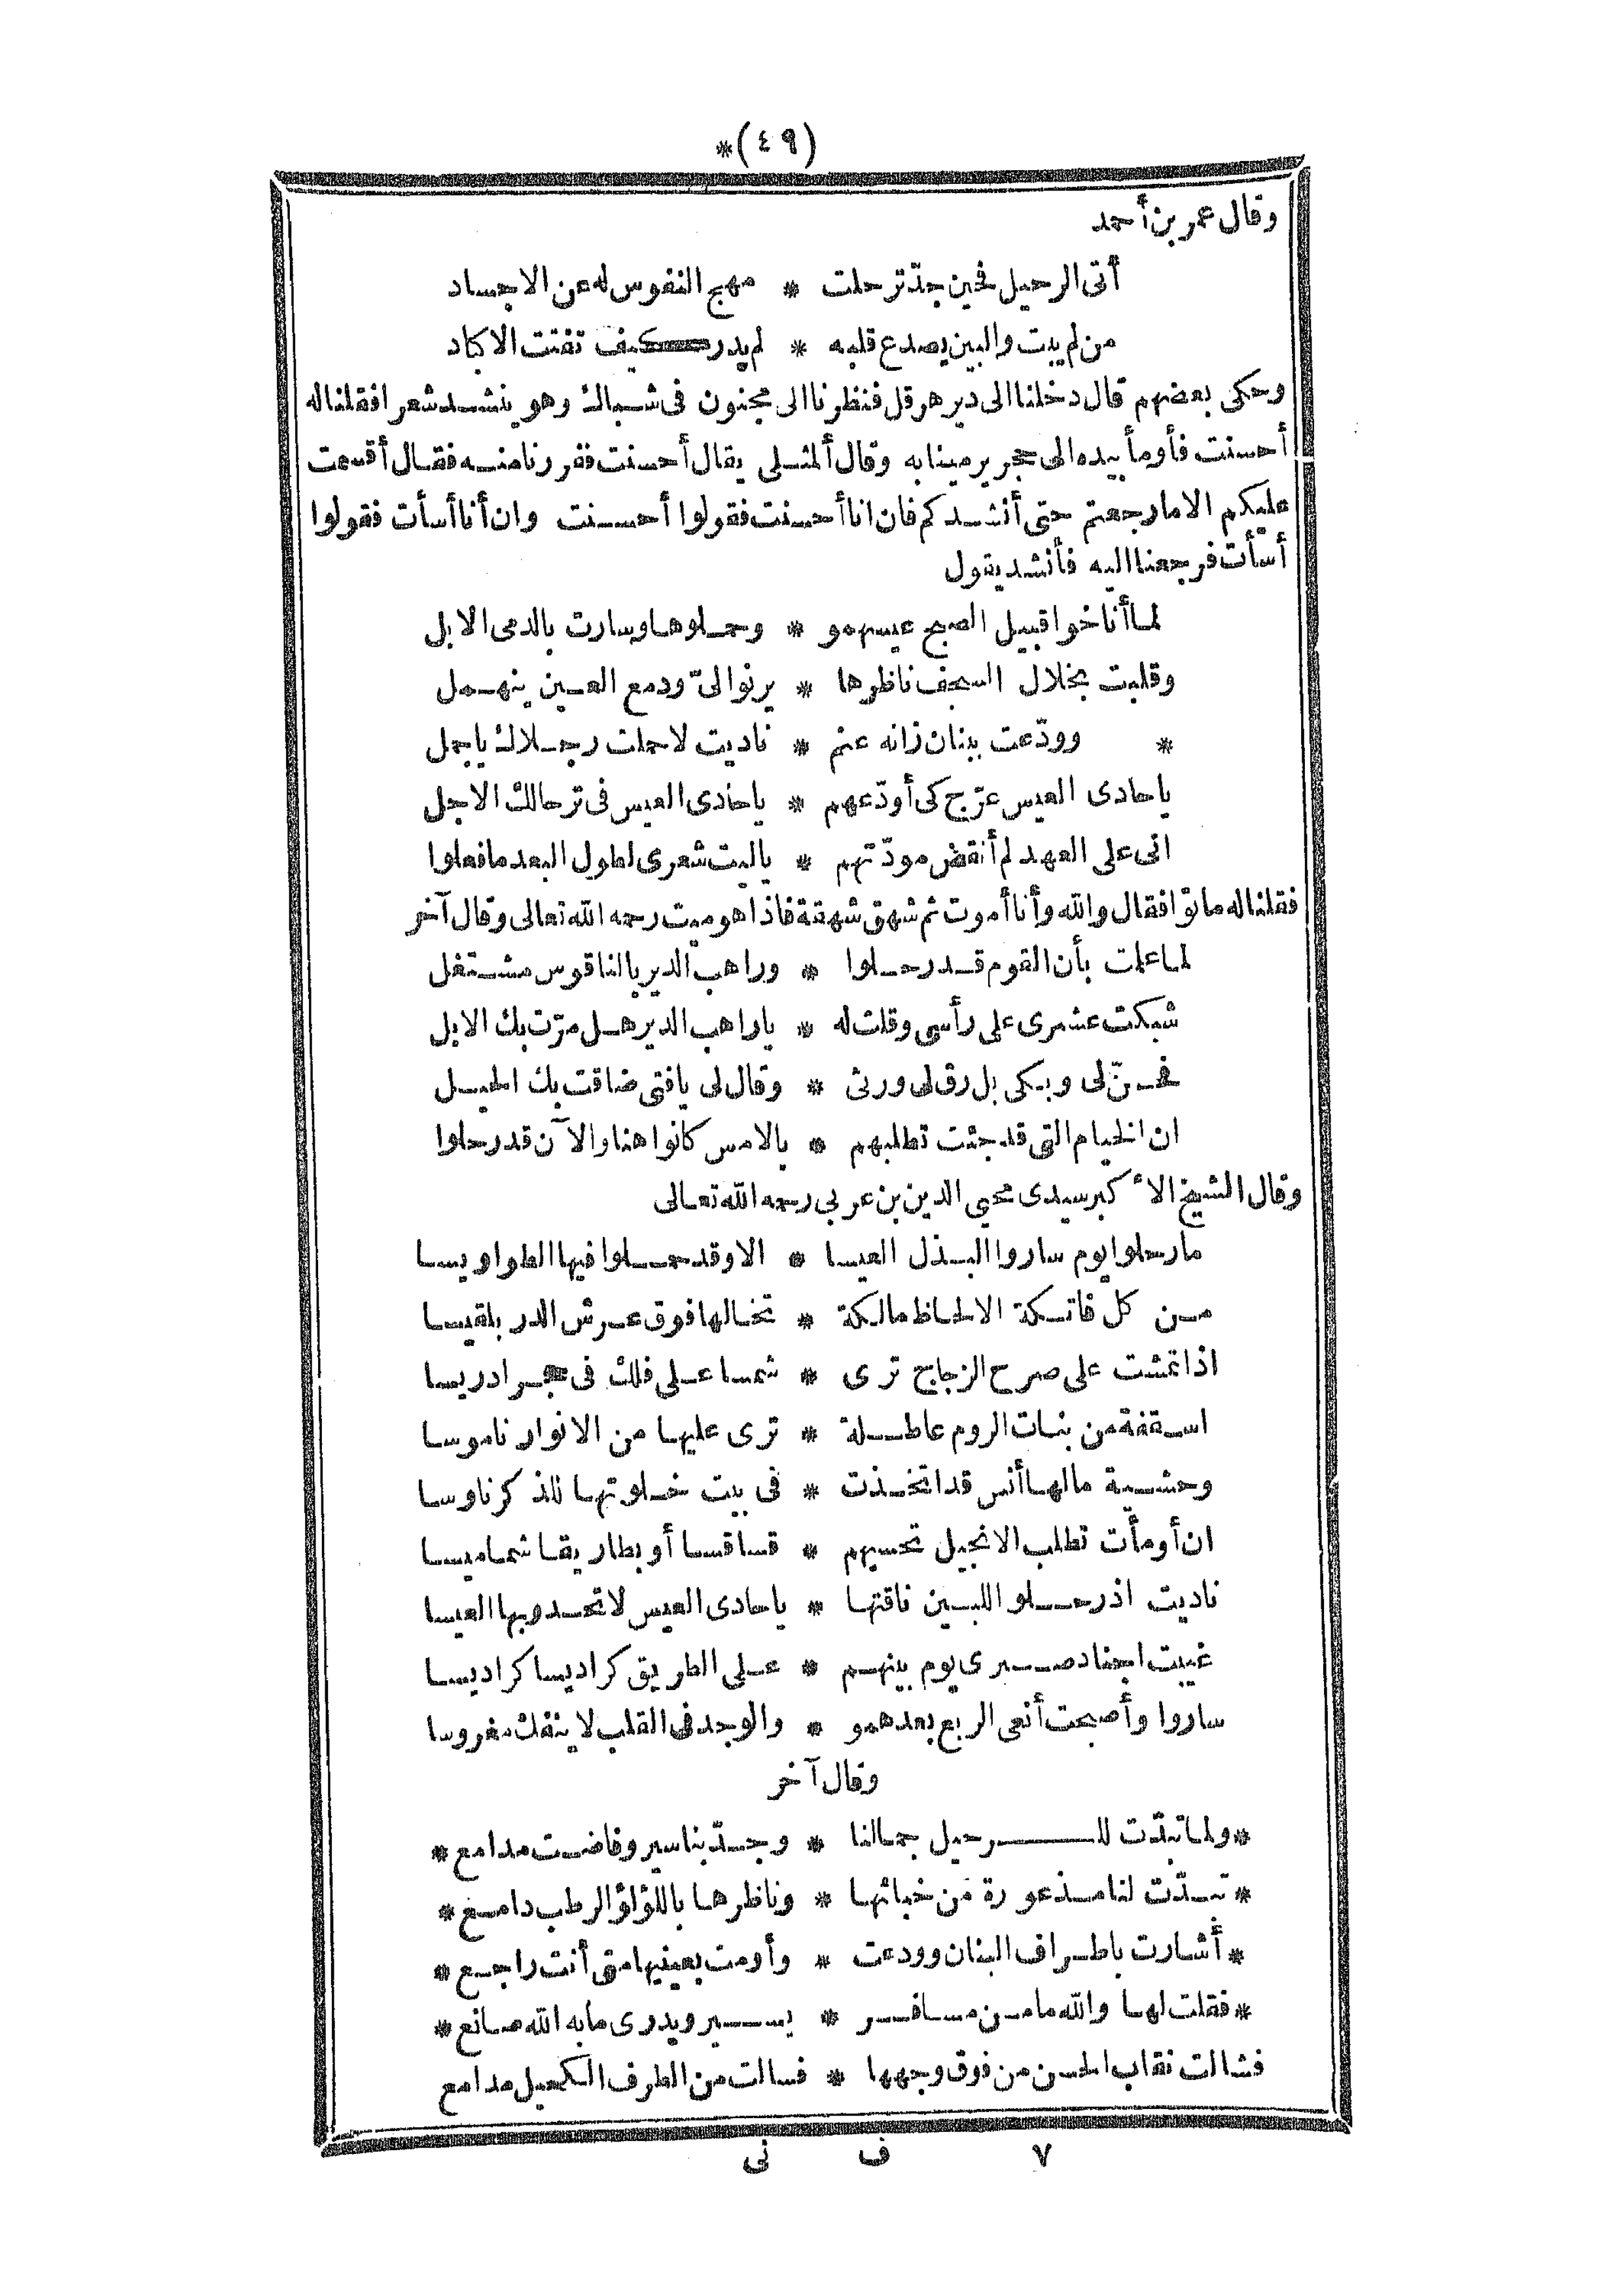 (٤٩)*
وقال عمر بن أحمد
أتى الرحيل فحين جدّ ترحلت * مهج النفوس له عن الاجساد
من لم يبت والبين يصدع قلبه * لم يدر كيف تفتت الاكاد
وحكى بعضهم قال دخلنا الى دير هرقل فنظرنا الى مجنون فى شباك وهو ينشد شعرا فقلنا له
أحسنت فأومأ بيده الى حجر يرمينا به وقال ألمثلى يقال أحسنت ففررنا منه فقال أقسمت
عليكم الا مارجعتم حتى أنشدكم فان انا أحسنت فقولوا أحسنت وان أنا أسأت فقولوا
أسأت فرجعنا اليه فأنشد يقول
لما أناخوا قبيل الصبح عيسهمو * وحملوها وسارت بالدمى الابل
وقلبت بخلال السجف ناظرها * يرنوا لىّ ودمع العين ينهمل
* وودّعت ببنان زانه عنم * ناديت لاحملت رجلاك ياجمل
ياحادى العيس عرّج كى أودّعهم * ياحادى العيس فى ترحالك الاجل
انى على العهد لم أنقض مودّتهم * ياليت شعرى لطول البعد مافعلوا
فقلنا له ماتوا فقال والله وأنا أموت ثم شهق شهقة فاذا هو ميت رحمه الله تعالى وقال آخر
لما علمت بأن القوم قد رحلوا * وراهب الدير بالناقوس مشتغل
شبكت عشرى على رأسى وقلت له * ياراهب الدير هل مرّت بك الابل
فحنّ لى وبكى بل رق لى ورثى * وقال لى يافتى ضاقت بك الحيل
ان الخيام التى قد جئت تطلبهم * بالامس كانوا هنا والآن قد رحلوا
وقال الشيخ الأكبر سيدى محيي الدين بن عربي رحمه الله تعالى
مارحلوا يوم ساروا البذل العيسا * الا وقد حملوا فيها الطواويسا
من كل فاتكة الالحاظ مالكة * تخالها فوق عرش الدر بلقيسا
اذا تمشت على صرح الزجاج ترى * شمسا على فلك فى حجر ادريسا
اسقفة من بنات الروم عاطلة * ترى عليها من الانوار ناموسا
وحشية مالها أنس قد اتخذت * فى بيت خلوتها للذكر ناوسا
ان أومأت تطلب الانجيل تحسبهم * قساقسا أو بطاريقا شماميسا
ناديت اذ رحلوا للبين ناقتها * ياحادى العيس لاتحدو بها العيسا
غيبت اجناد صبرى يوم بينهم * على الطريق كراديسا كراديسا
ساروا وأصبحت أنعى الربع بعدهمو * والوجد فى القلب لاينفك مغروسا
وقال آخر
*ولما تبدّت للرحيل جمالنا * وجدّ بنا سير وفاضت مدامع*
*تبدّت لنا مذعورة من خبائها * وناظرها باللؤلؤ الرطب دامع*
*أشارت باطراف البنان وودعت * وأومت بعينيها متى أنت راجع*
*فقلت لها والله مامن مسافر * يسير ويدرى مابه الله صانع*
فشالت نقاب الحسن من فوق وجهها * فسالت من الطرف الكحيل مدامع
٧ ف نى